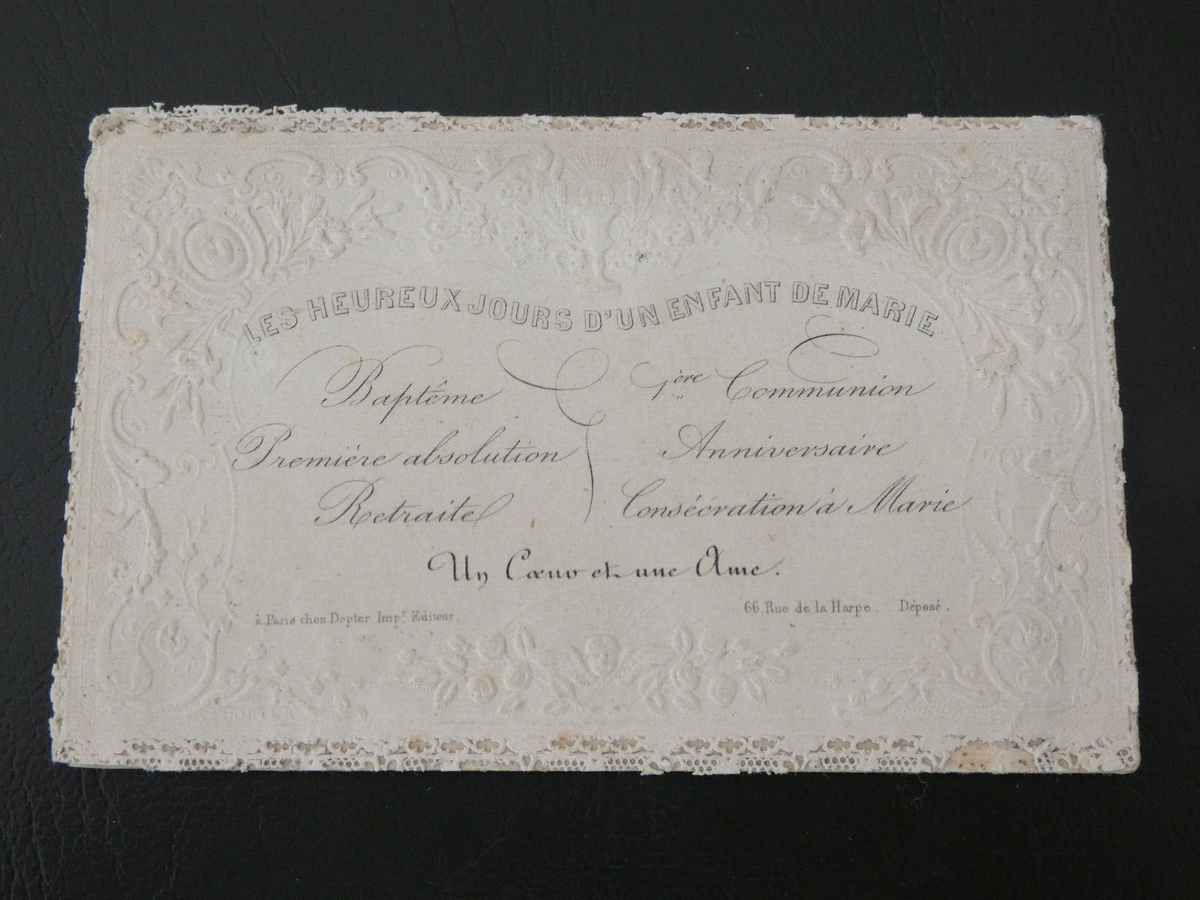 LES HEUREUX JOURS D'UN ENFANT DE MARIE
Baptême
Première absolution
Retraite
1ère Communion
Anniversaire
Consécration à Marie
Un Cœur et une Ame.
à Paris chez Dopter Impr Editeur.
66 Rue de la Harpe. Déposé.